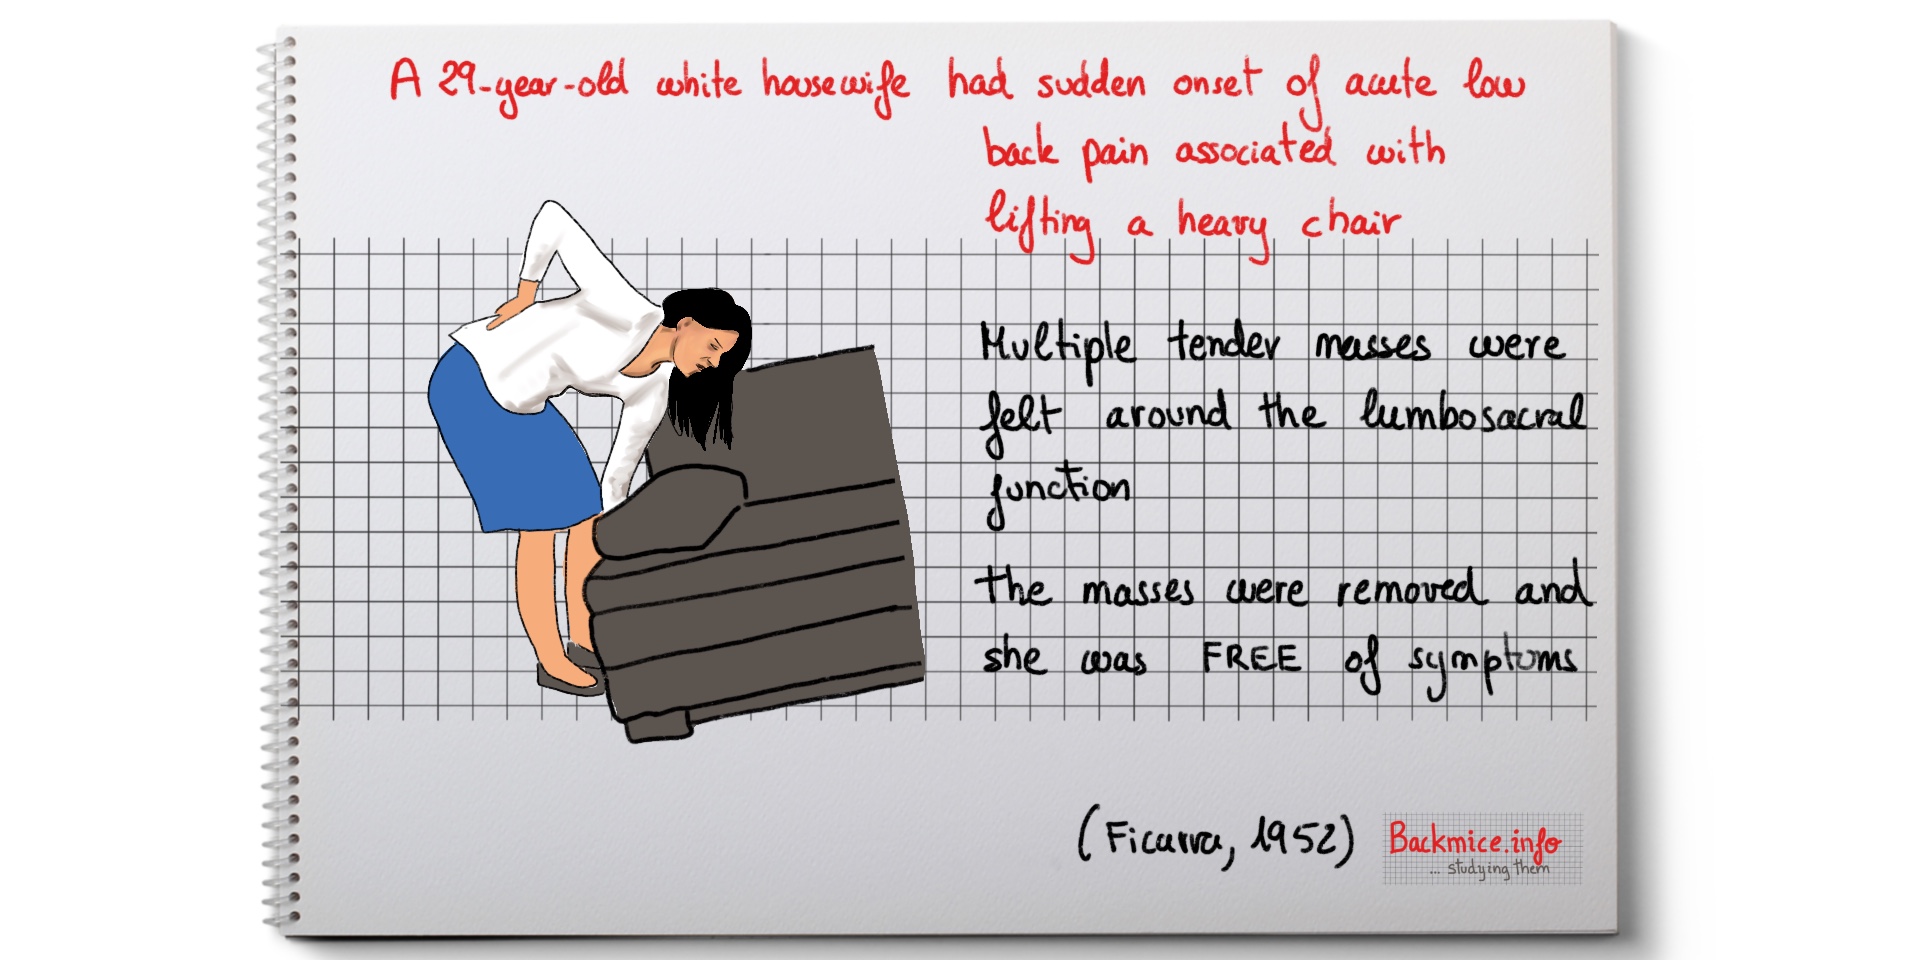 A 29-year-old white housewife had sudden onset of acute low
back pain associated with
lifting a heavy chair
Multiple tender masses were
felt around the lumbosacral
junction
the masses were removed and
she was FREE of symptoms
(Ficarra, 1952)
Backmice.info
... studying them